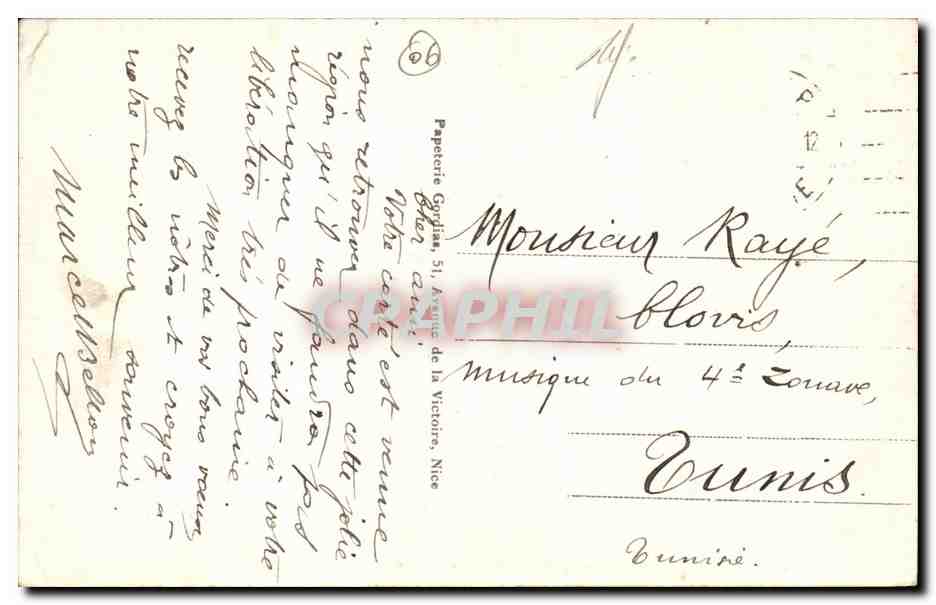 Cher ami
Votre carte est venue
nous retrouver dans cette jolie
région qu'il ne faudra pas
manquer de visiter à votre
libération très prochaine.
Merci de vos bons vœux
recevez les nôtres et croyez à
notre meilleur souvenir.
Marcel Bellon
Papeterie Gordias, 51, Avenue de la Victoire, Nice
Monsieur Rayé,
Clovis,
musique du 4e Zouave,
Tunis.
Tunisie.
12
CPAPHIL